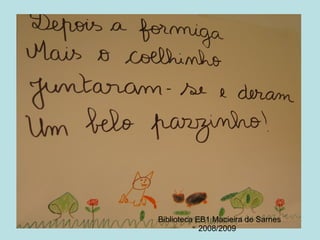 Depois a formiga
Mais o coelhinho
Juntaram-se e deram
Um belo parzinho!
Biblioteca EB1 Macieira de Sarnes
- 2008/2009